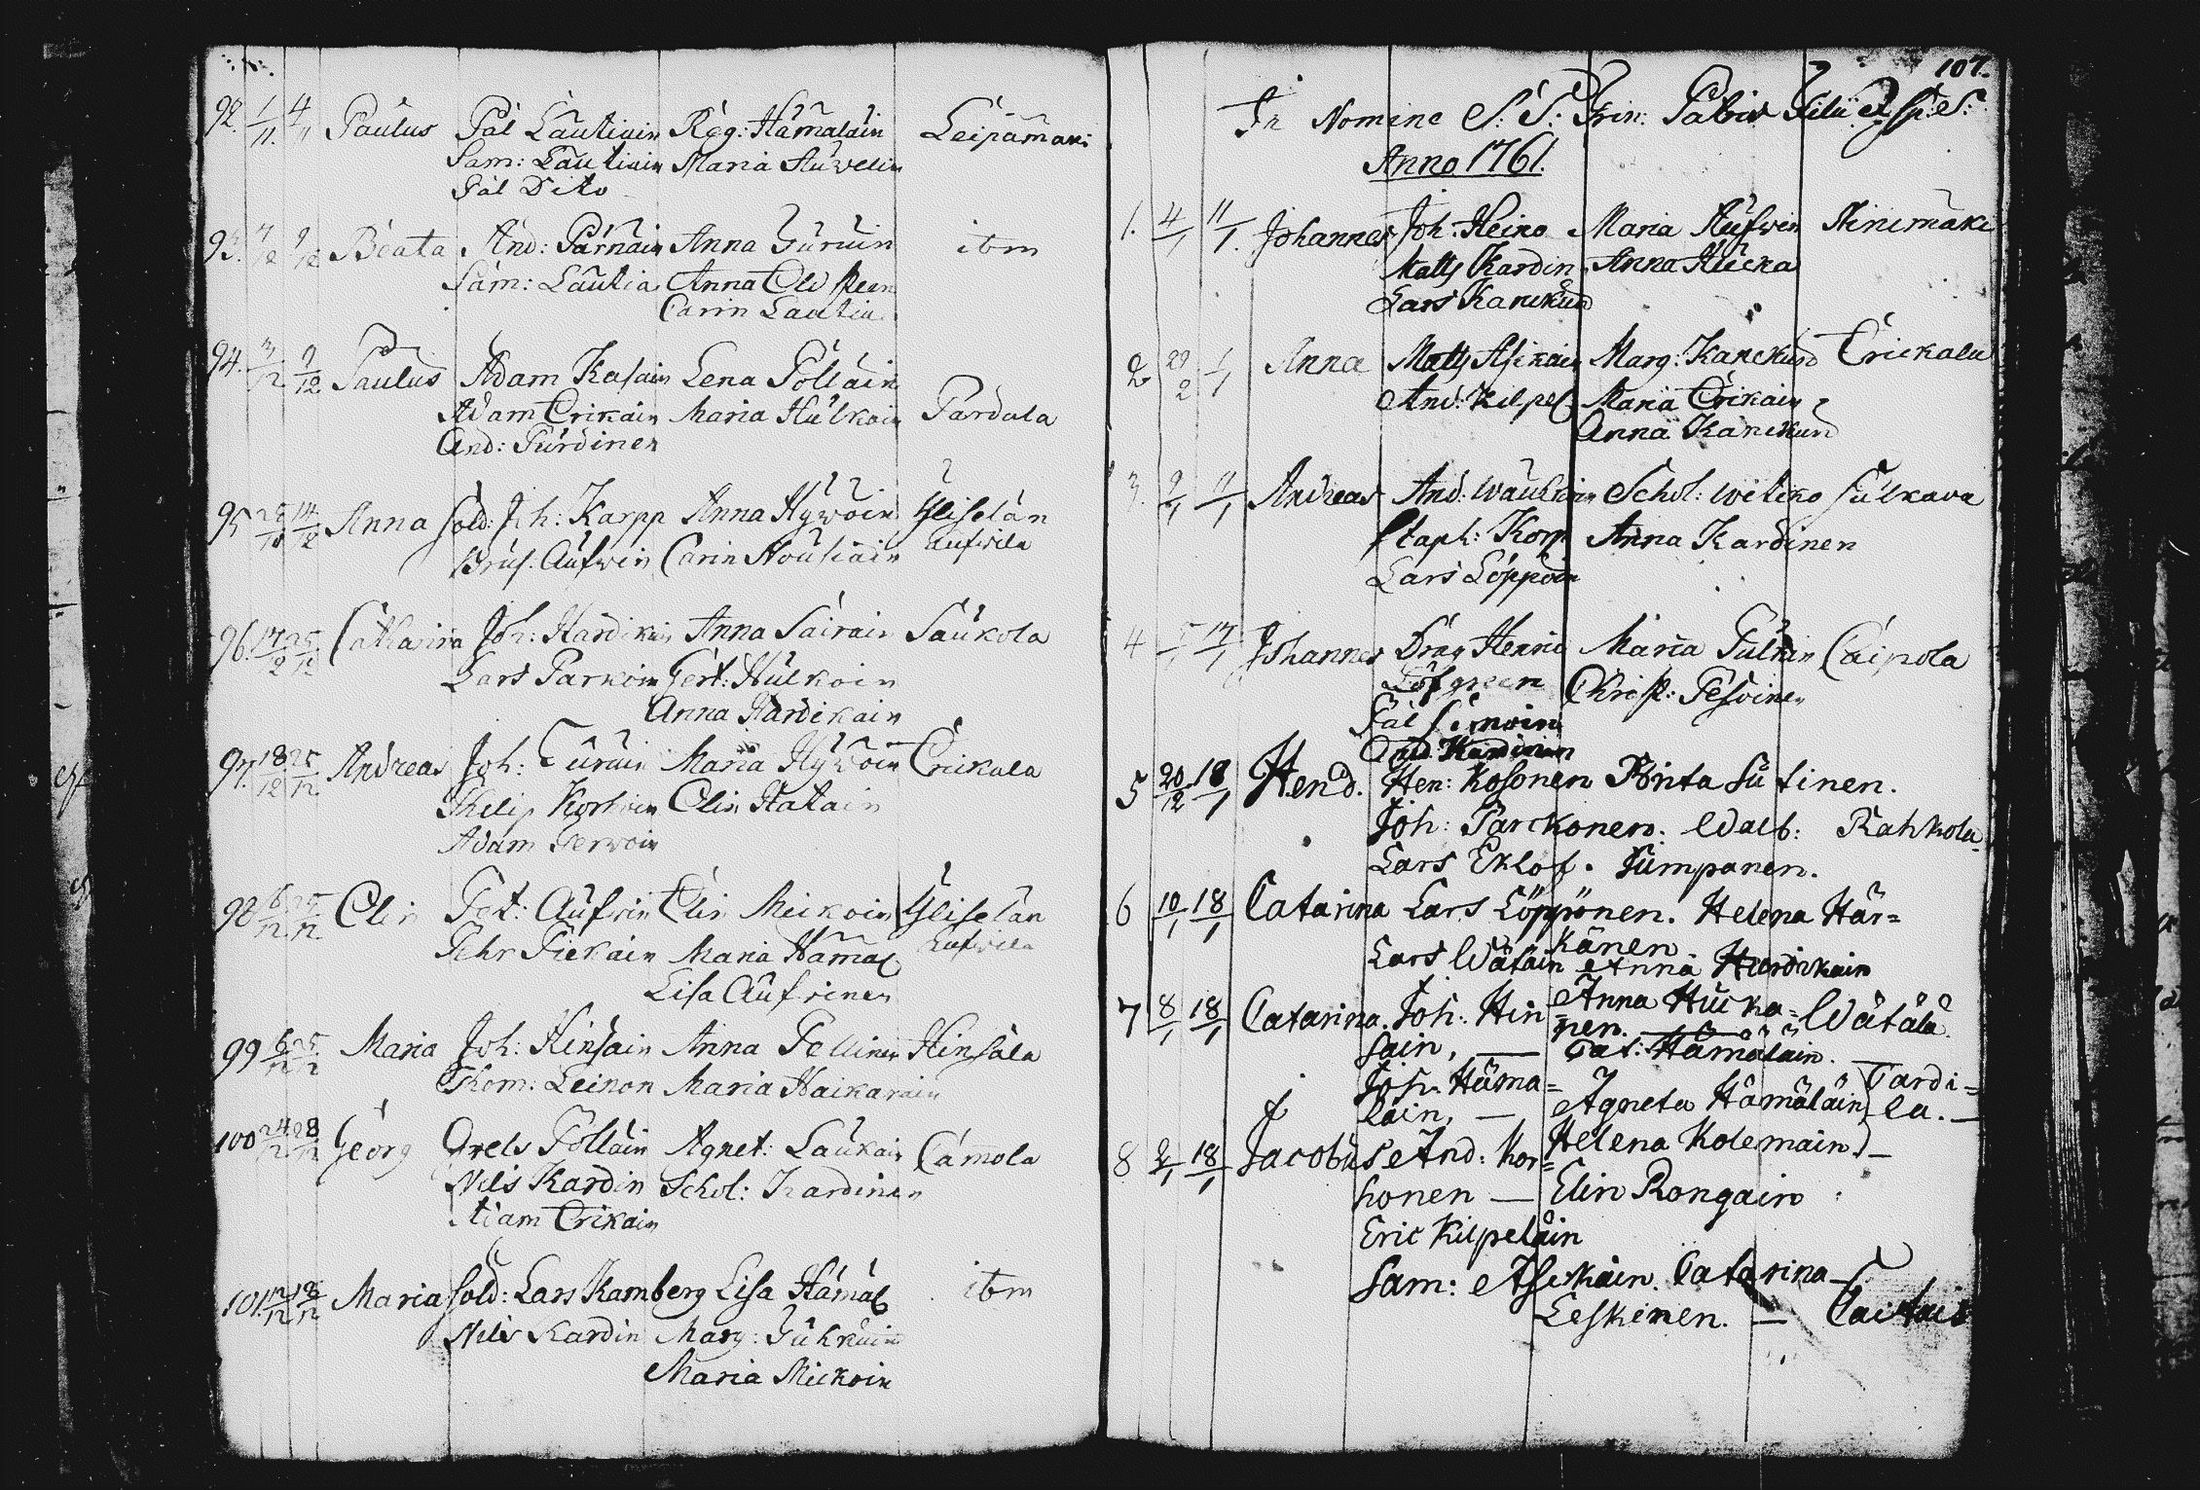 92. 1/11. 4/11 Paulus Pål Lautiain Reg: Hämäläin Leipämäki
Sam: Lautiain Maria Auvelin
Pål Dito
93. 7/12 9/12 Beata And: Pärnäin Anna Turuin itm
Sam: Lautia Anna
Carin Lautia
94. 3/12 9/12 Paulus Adam Kasain Lena Pölläin
Adam Erikäin Maria Hulkoin Pardala
And: Purdinen
95 14/12 Anna Sold: Joh: Karpp Anna Hÿwöin Ylisclän
Aufwin Carin Nousiain Aufwila
96. 17/12 25/12 Catharina Joh: Hardikain Anna Sairain Saukola
Lars Parkoin Gert: Hulkoin
Anna Hardikain
97. 18/12 25/12 Andreas Joh: Turuin Maria Hÿwöin Erickala
Philip Korhoin Elin Hatain
Adam
98 6/12 25/12 Elin Pet: Aufwin Elin Meikoin Ylisclän
Pehr Piekäin Maria Hämäl Aufwila
Lisa Aufwinen
99 6/12 25/12 Maria Joh: Hinsain Anna Pellinen Hinsala
Thom: Leinon Maria Haikarain
100 24/12 28/12 Georg Grels Pölläin Agnet: Laukain Cámola
Nils Kardin Schol: Kardinen
Adam Erikain
101. Maria Sold: Lars Kamberg Lisa Hämäl itm
Nils Kardin Marg: Tukruin
Maria Mickoin
107.
In Nomine S: S: Trin: Patris Filii Et Sp: S:
Anno 1761.
1. 4/1 11/1. Johannes Joh: Heino Maria Aufwin Ninimäki
Matts Kardin Anna Hucka
Lars Kanckund
2 1/1 Anna Matts Asikain Marg: Kanckund Erickala
And: Kilpel Maria Erikäin
Anna Kanckund
3. Andreas And: Schol: Witiko Sulkava
Staph: Korp Anna Kardinen
Lars Löppöin
4 17/1 Johannes Drag Henric Maria Pulkin Caipola
Löfgreen Christ: Pesoinen
Pål
And: Kardinen
5 20/12 18/1 Hend. Hen: Kosonen Brita Sutinen.
Joh: Parckonen. Walb: Rahkola
Lars Eklöf. Sumpanen.
6 10/1 18/1 Catarina Lars Löppönen. Helena Här=
känen
Lars Wätäin Anna Hardikain
7 8/1 18/1 Catarina. Joh: Hin= Anna Hucka= Wätälä
sain, — nen. — Cat: Hämäläin.
Joh: Häma= Tardi=
läin, — Agneta Hämäläin, la. —
Helena Kolemain —
8 18/1 Jacobus And: Kor=
honen — Elin Rongain
Eric Kilpeläin
Sam: Asikäin Catarina
Leskinen. —